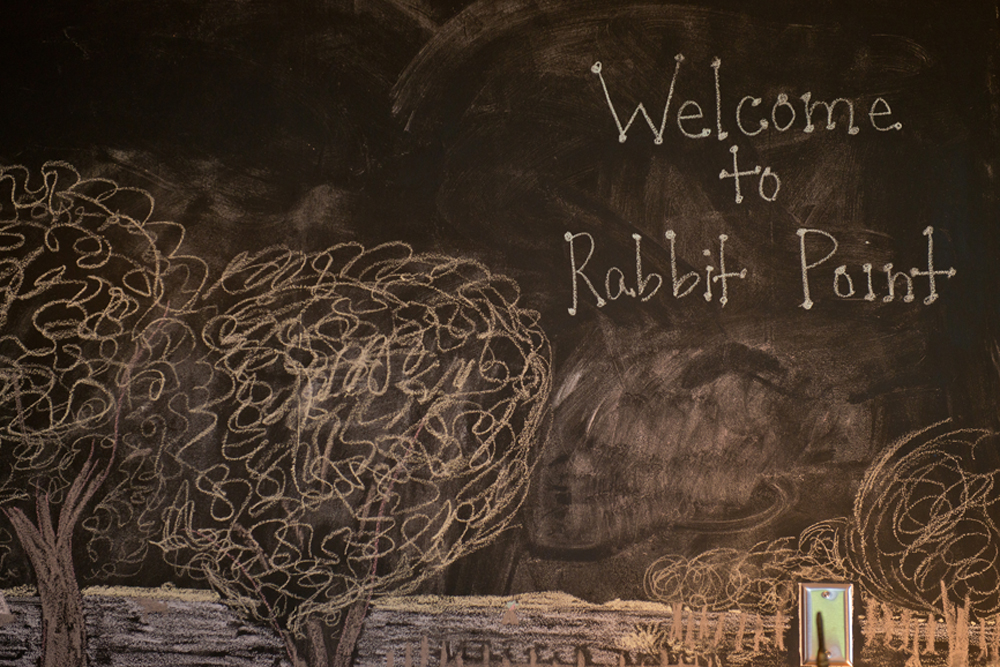 Welcome
to
Rabbit Point